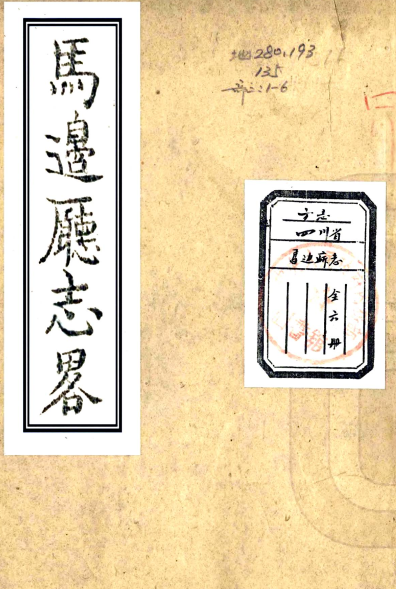 馬邊廳志畧
地280.193
135
部二:1-6
方志
四川省
馬边廳志
全六册